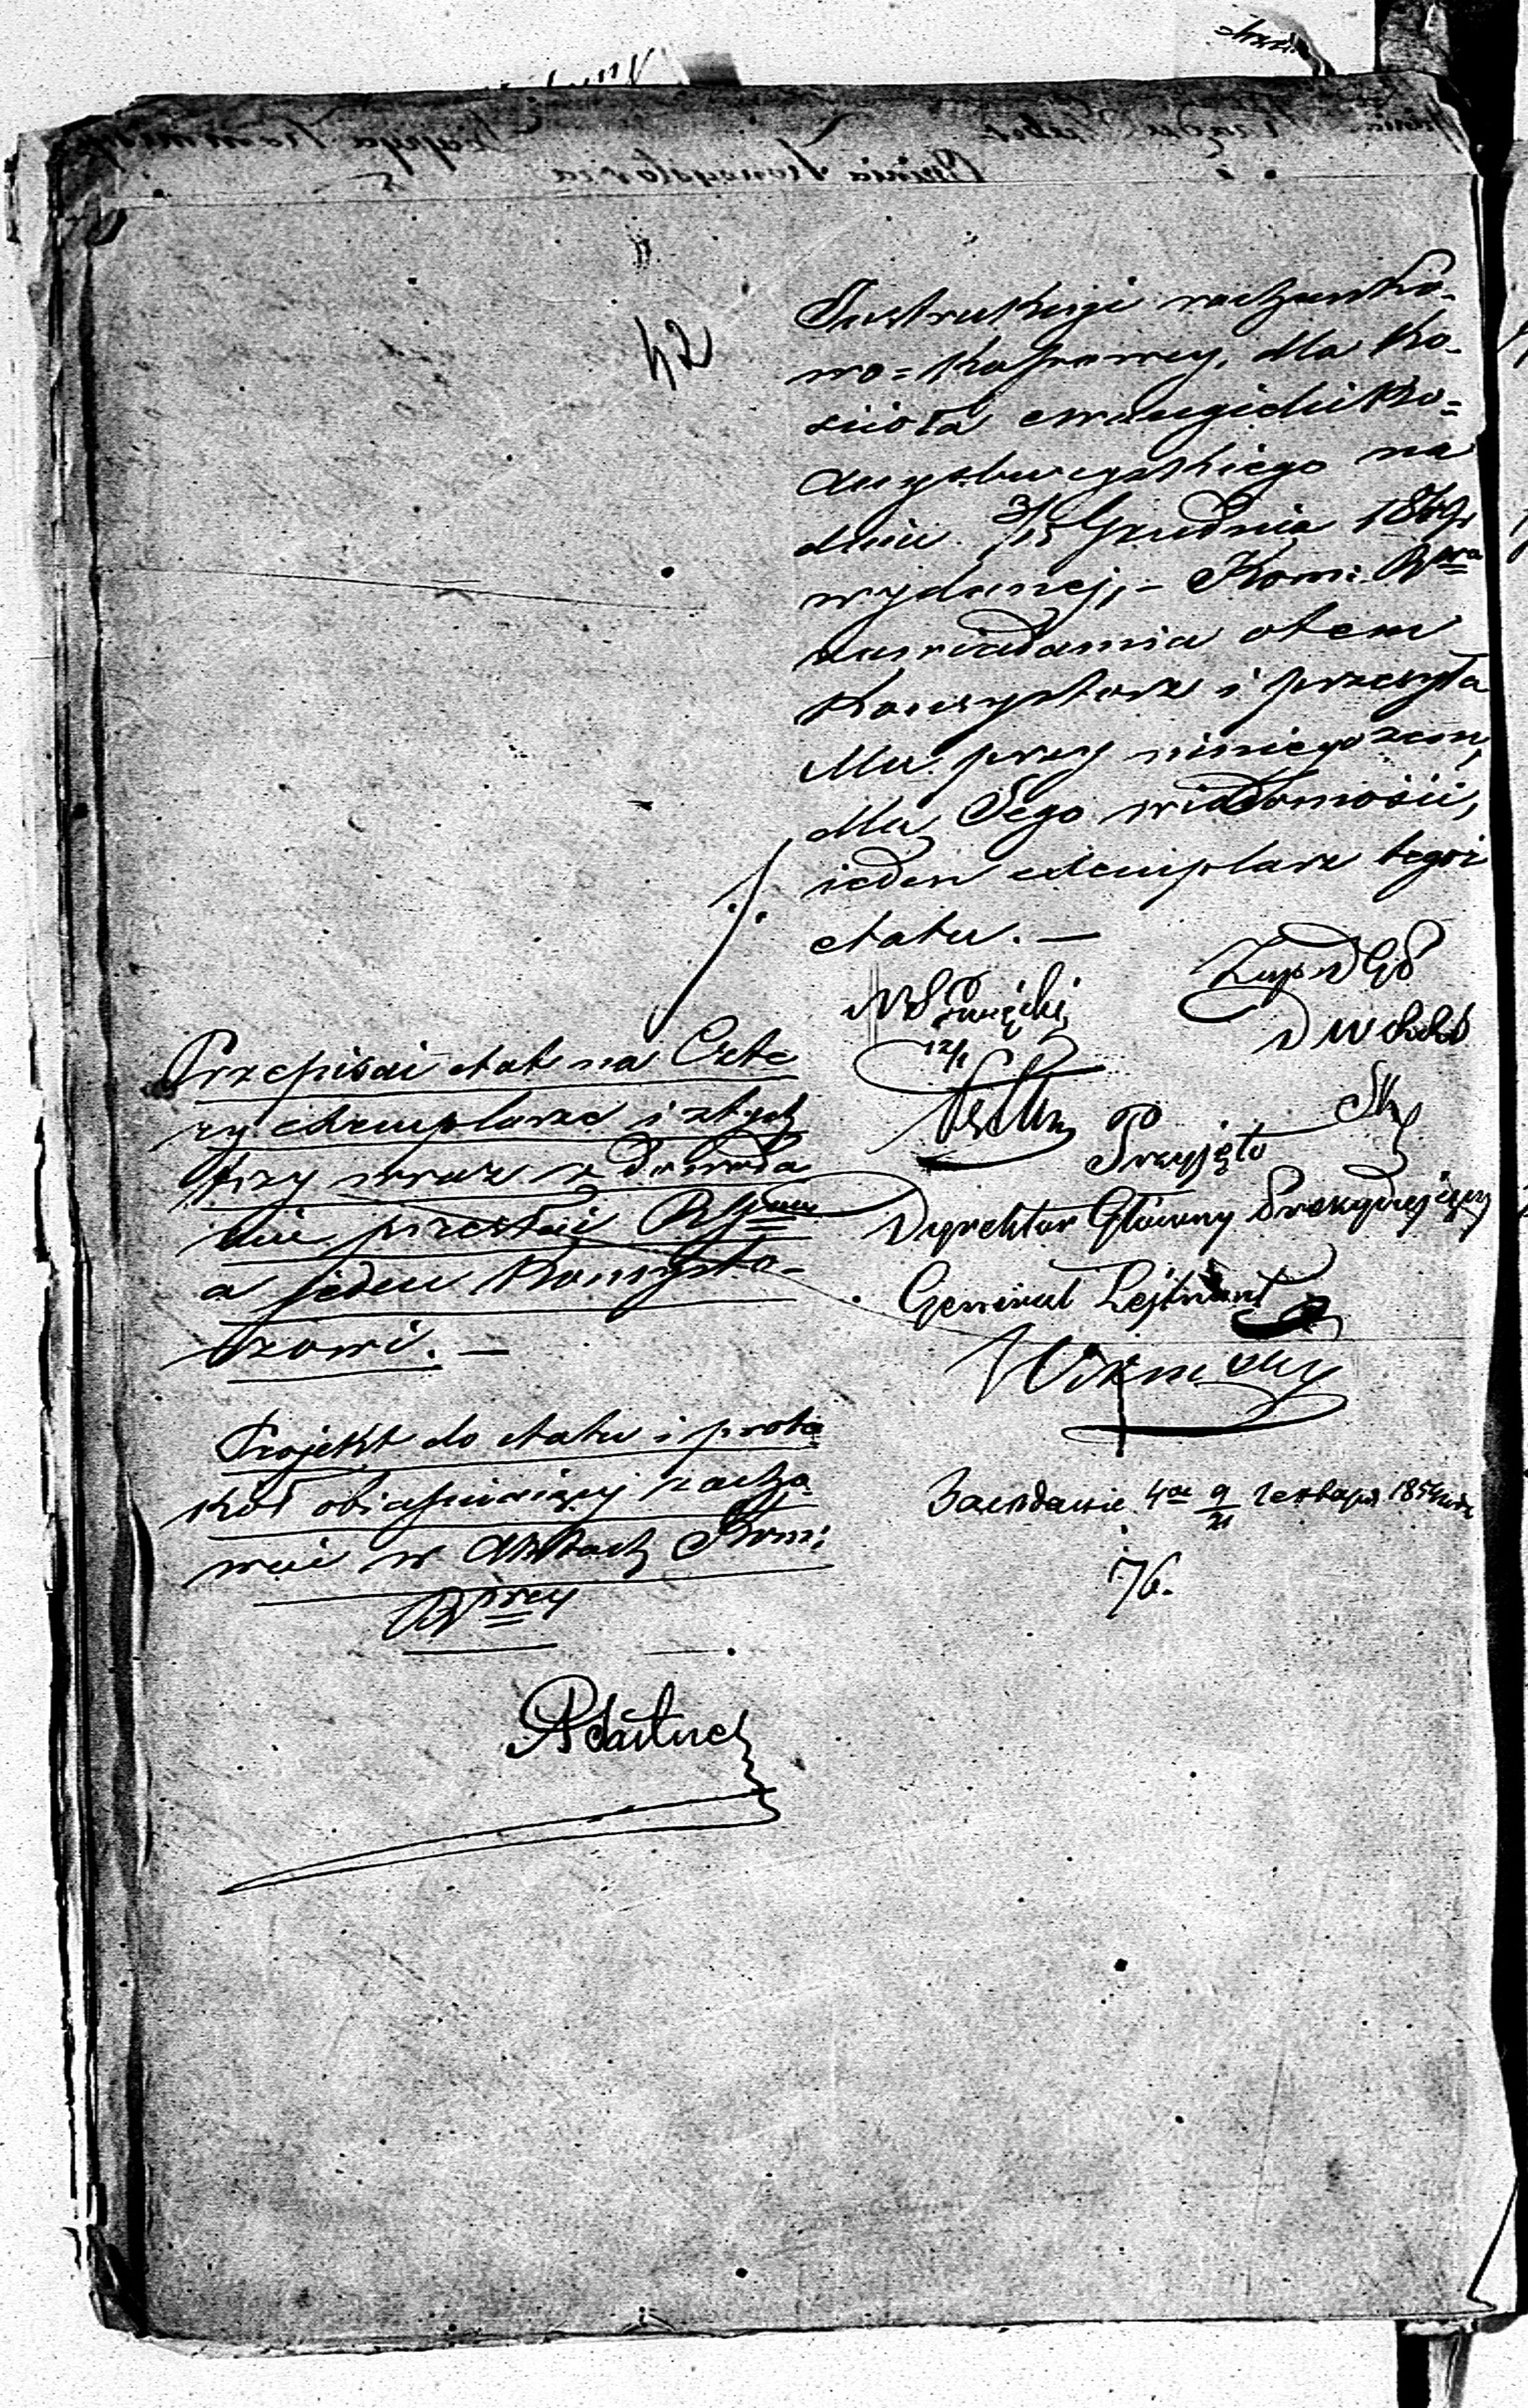 42
Instrukcyi rachunko-
wo=Kassowey, dla Ko-
ścioła ewangielicko=
augsburgskiego na
dniu 3/15 Grudnia 1849 r
wydaney, – Kom: Rwa
zawiadamia o tem
Konsystorz i przesyła
Mu przy niniejszem,
dla Jego wiadomości,
ieden exemplarz tegoż
etatu. —
12/1
Przyjęto
Dyrektor Główny Prezydujący
Generał Lejtnant
Wikinski
Przepisać etat na Czte
ry exemplarze i z tych
trzy wraz z dowoda
mi przesłać
a jeden Konsysto-
rzowi. —
Projekt do etatu i proto
kół obiaśniaiący zacho
wać w aktach Kom:
Заседание 4ое 9/21 Января 185
76.